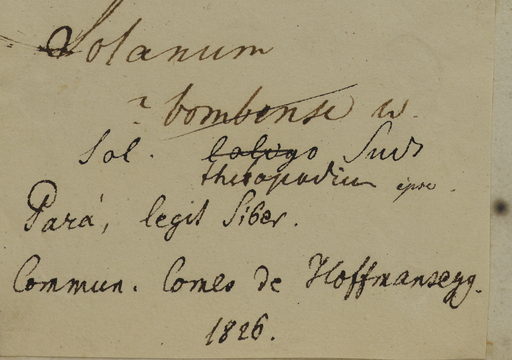 Solanum
? bombense w.
Sol. calygo
ipse.
Pará, legit Siber.
Commun. Comes de Hoffmansegg.
1826.